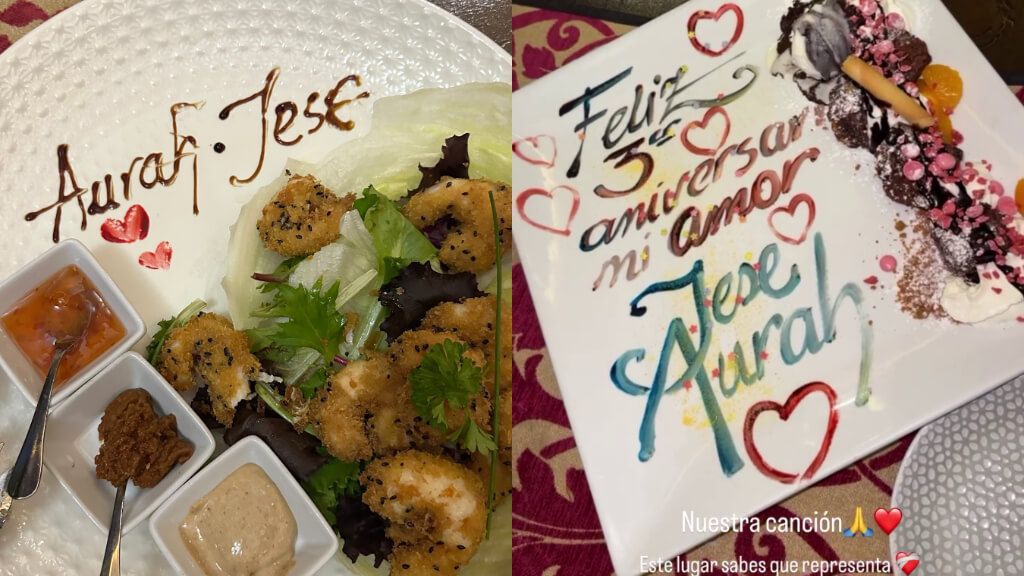 Aurah · Jese
Feliz
3er
aniversario
mi amor
Jese
Aurah
Nuestra canción🙏❤️
Este lugar sabes que representa❤️‍🩹